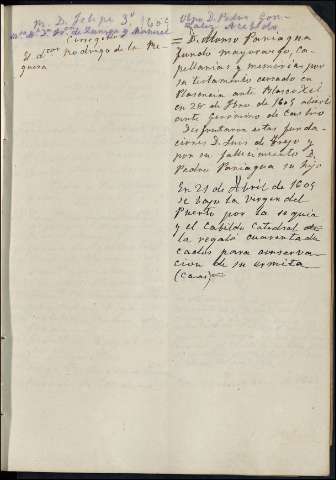 M. D. Felipe 3º 1605
Corregidor
El dtor Rodrigo de la Re-
guera
Obpo D. Pedro Gon-
zalez Acebedo
= D. Alonso Paniagua
fundo mayorazgo, Ca-
pellanias y memorias, por
su testamento cerrado en
Plasencia ante Blasco Gil
en 28 de de 1605 abierto
ante Geronimo de Castro
Disfrutaron estas funda-
ciones D. Luis de Trejo y
por su fallecimiento D.
Pedro Paniagua su hijo
En 21 de Abril de 1605
se bajo la Virgen del
Puerto por la sequia
y el Cabildo Catedral
la regaló cuarenta du-
cados para conserva-
cion de su ermita